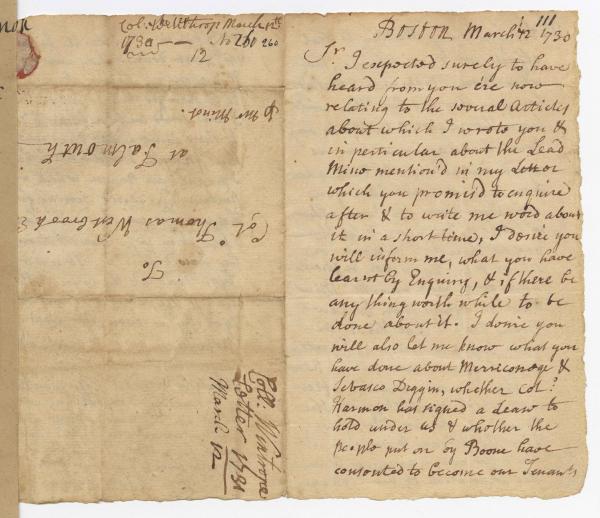 Col. Winthrop March 12th
1730 — No 260 260
12
℘ Mr Minot.
at Falmouth
Colo Thomas Westbrook E
To
Coll: Wintrops
Letter 1730
March 12
BOSTON March 12 1730
Sr. I expected surely to have
heard from you ere now
relating to the several Articles
about which I wrote you &
in perticular about the Lead
Mine mention'd in my Letter
which you promis'd to enquire
after & to write me word about
it in a short time, I desire you
will inform me, what you have
learnt by Enquiry, & if there be
any thing worth while to be
done about it. I desire you
will also let me know what you
have done about Merriconege &
Sebasco Diggin, whether Col:
Harmon has signed a Lease to
hold under us & whether the
people put on by Boone have
consented to become our Tenants